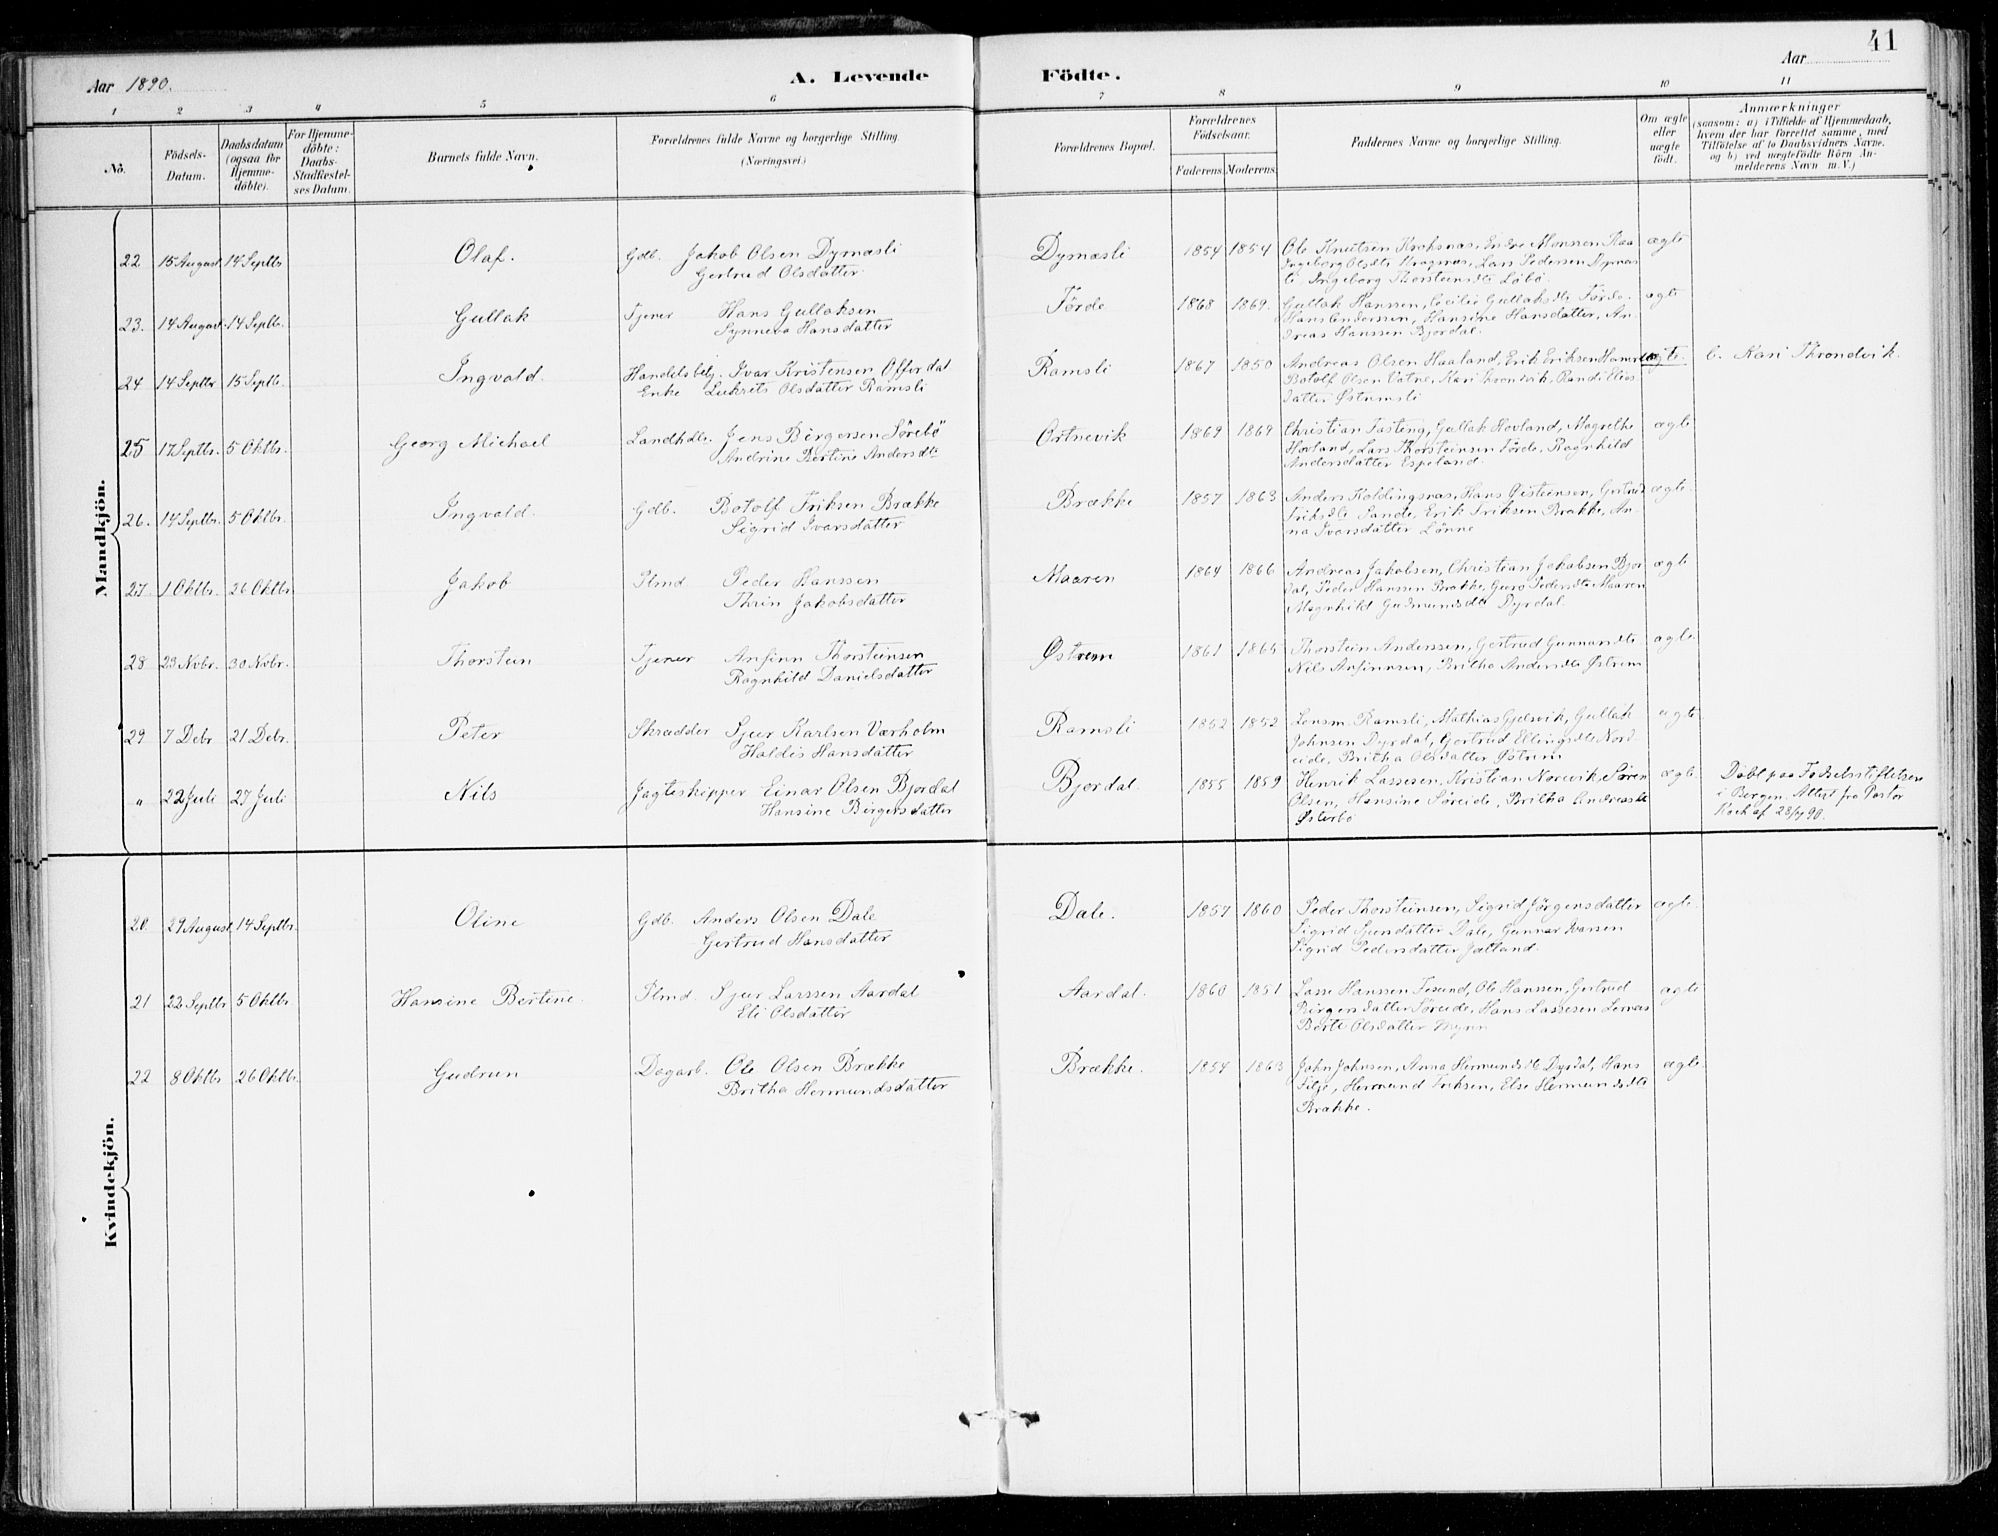 41
Aar 1890.
A. Levende
Födte.
Aar
1 2 3 4 5 6 7 8 9 10 11
No.
Födsels-
Datum.
Daabsdatum
(ogsaa for
Hjemme-
döbte).
For Hjemme-
döbte:
Daabs-
Stadfæstel-
ses Datum.
Barnets fulde Navn.
Forældrenes fulde Navne og borgerlige Stilling.
(Næringsvei.)
Forældrenes Bopæl.
Forældrenes
Födselsaar.
Faderens. Moderens.
Faddernes Navne og borgerlige Stilling.
Om ægte
eller
uægte
födt.
Anmærkninger
(saasom: a) i Tilfælde af Hjemmedaab,
hvem der har forrettet samme, med
Tilföielse af to Daabsvidners Navne.
og b) ved uægtefödte Börn An-
melderens Navn m. V.)
Mandkjön.
22 15 August 14 Septbr Olaf. Gdb. Jakob Olsen Dymæsli Dymæsli 1854 1854 Ole Knutsen Kroksnæs, Endre Monssen Kaa ægte
Gertrud Olsdatter
Ingeborg ThorsteinsdtrLøbø.
23. 14 August 14 Septbr. Gullak Tjener Hans Gullaksen Förde 1868 1869. Gullak Hanssen, Cecilie Gullaksdtr Förde. ægte
Synneva Hansdatter Hans Anderssen, Hansine Hansdatter, An-
dreas Hanssen Bjordal.
24 14 Septbr 15 Septb. Ingvald. Handelsbetj. Ivar Kristensen Offerdal Ramsli 1867 1850 Andreas Olsen Haaland, Erik Eriksen b. Kari Throndvik.
Enke Lukrets Olsdatter Ramsli Botolf Olsen Vatne, Kari Throndvik, Randi Elias
datter Østumsli
25 17 Septbr. 5 Oktbr. Georg Michael Landhdlr. Jens Börgersen Sörebö Ortnevik 1869 1869 Christian Tasteng, Gullak Hovland, Magrethe ægte
Andrine Bertine Andersdtr Hovland, Lars Thorsteinsen Förde, Ragnhild
Andersdatter Espeland.
26. 14 Septbr. 5 Oktbr. Ingvald. Gdb. Botolf Eriksen Brække Brække 1857 1863 Anders Koldingsnæs, Hans Øisteinsen, Gertrud ægte.
Sigrid Ivarsdatter Eriksdtr Sande, Erik Eriksen Brække, An-
na Ivarsdatter Lönne
27. 1 Oktbr. 26 Oktbr Jakob Plmd Peder Hanssen Maaren 1864 1866 Andreas Jakobsen, Christian Jakobsen Bjor ægte
Thrin Jakobsdatter dal, Peder Hanssen Brække, Guro Pedersdtr Maaren
Magnhild Gudmundsdtr Dyrdal.
28 23 Novbr. 30 Novbr. Thorstein Tjener Anfinn Thorsteinsen Østrem 1861 1865 Thorstein Anderssen, Gertrud Gunnarsdtr ægte
Ragnhild Danielsdatter Nils Anfinnsen, Britha Andersdtr Østrem
29 7 Debr 21 Debr. Peter Skrædder Sjur Karlsen Værholm Ramsli 1852 1852 Lensm. Ramsli, Mathias Gjelsvik, Gullak ægte
Haldis Hansdatter Johnsen Dyrdal, Gertrud Ellingsdtr Nord
eide, Britha Olsdatter Østrem
" 22 Juli 27 Juli Nils Jagteskipper Einar Olsen Bjordal Bjordal. 1855 1859 Henrik Lassesen, Kristian Norevik, Sören ægte. Döbt paa Fødselsstiftelsen
Hansine Börgersdatter Olsen, Hansine Søreide, Britha Andreasdtr i Bergen. Attest fra Pastor
Østerbø Koch af 28/7 90.
Kvindekjön.
20 29 August 14 Septbr. Oline Gdb. Anders Olsen Dale Dale. 1857 1860 Peder Thorsteinsen, Sigrid Jörgensdatter ægte.
Gertrud Hansdatter Sigrid Sjursdatter Dale, Gunnar Ivarsen
Sigrid Pedersdatter Jætland.
21 22 Septbr 5 Oktbr Hansine Bertine. Plmd. Sjur Larssen Aardal Aardal. 1860 1851 Lasse Hanssen Tesund, Ole Hanssen, Gertrud ægte
Eli Olsdatter Börgersdatter Søreide, Hans Lassesen
Berte Olsdatter
22 8 Oktbr 26 Oktbr. Gudrun Dagarb. Ole Olsen Brække Brække. 1854 1863 John Johnsen, Anna Hermundsdtr Dyrdal, Hans ægte.
Britha Hermundsdatter Hermund Eriksen, Else Hermundsdtr
Brække.